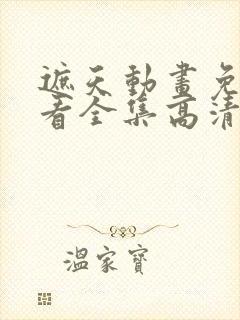 遮天動畫免
看全集高清
溫家寶